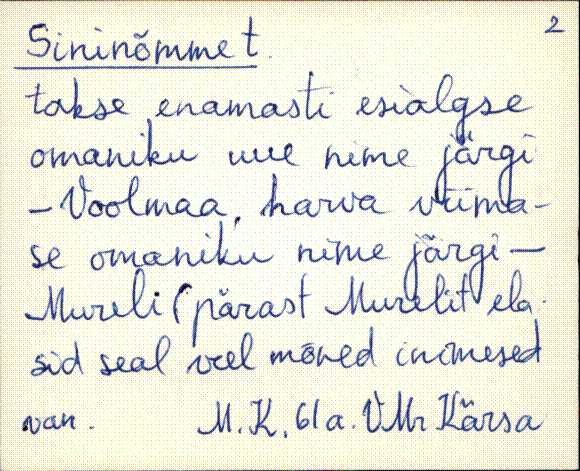 2
Sininõmme t.
takse enamasti esialgse
omaniku uue nime järgi
– Voolmaa, harva viima-
se omaniku nime järgi –
Mureli (pärast Murelit ela-
sid seal veel mõned inimesed
van. M. K. 61 a. VMr Kärsa